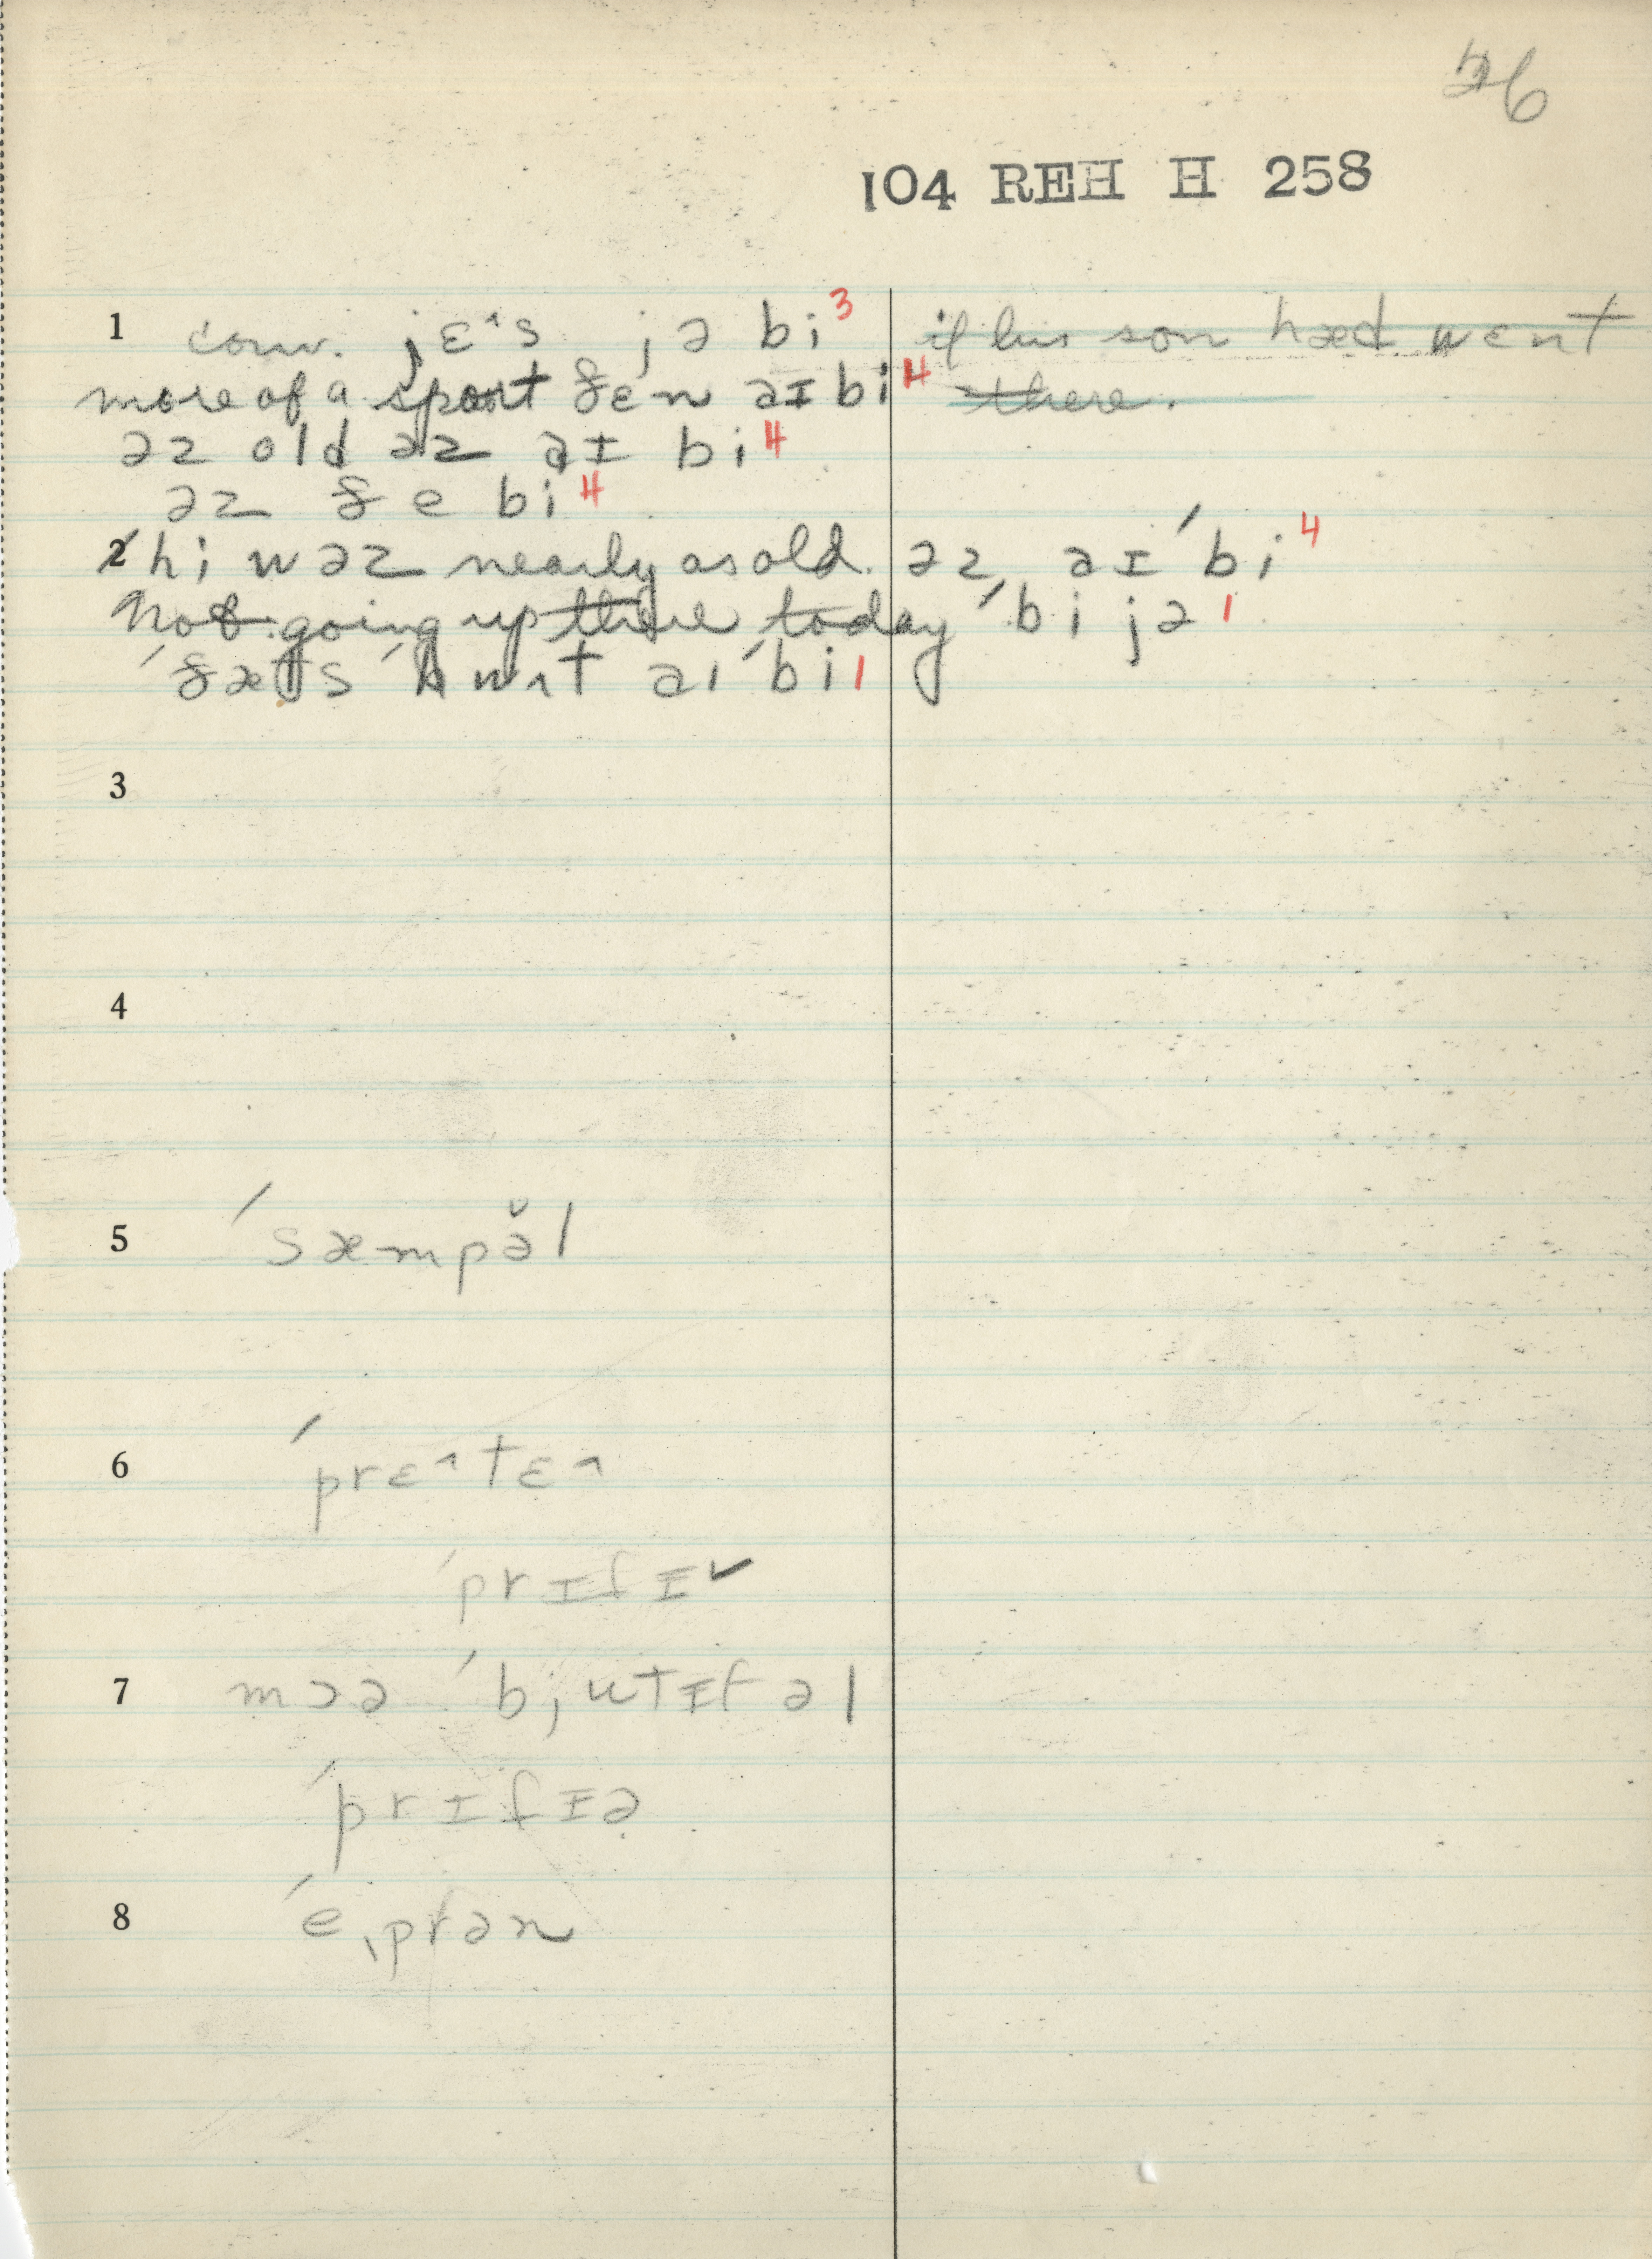 26
104 REH H 258
1 conv. jɛ^s jə bi³ if his son hæd wɛnt
more of a sport ðɛn əɪ bi⁴ there.
əz old əz əɪ bi⁴
əz ðe bi⁴
2 hi wəz nearly as old əz əɪ ˈbi⁴
Not going up there today ˈbi jə¹
ˈðæts ˈhwʌt əɪ ˈbi¹
3
4
5 ˈsæmpə̆l
6 ˈprɛ^tɛ^
ˈprɪtɪ˅
7 mɔə ˈbjutɪfəl
ˈprɪtɪə
8 ˈeˌprən